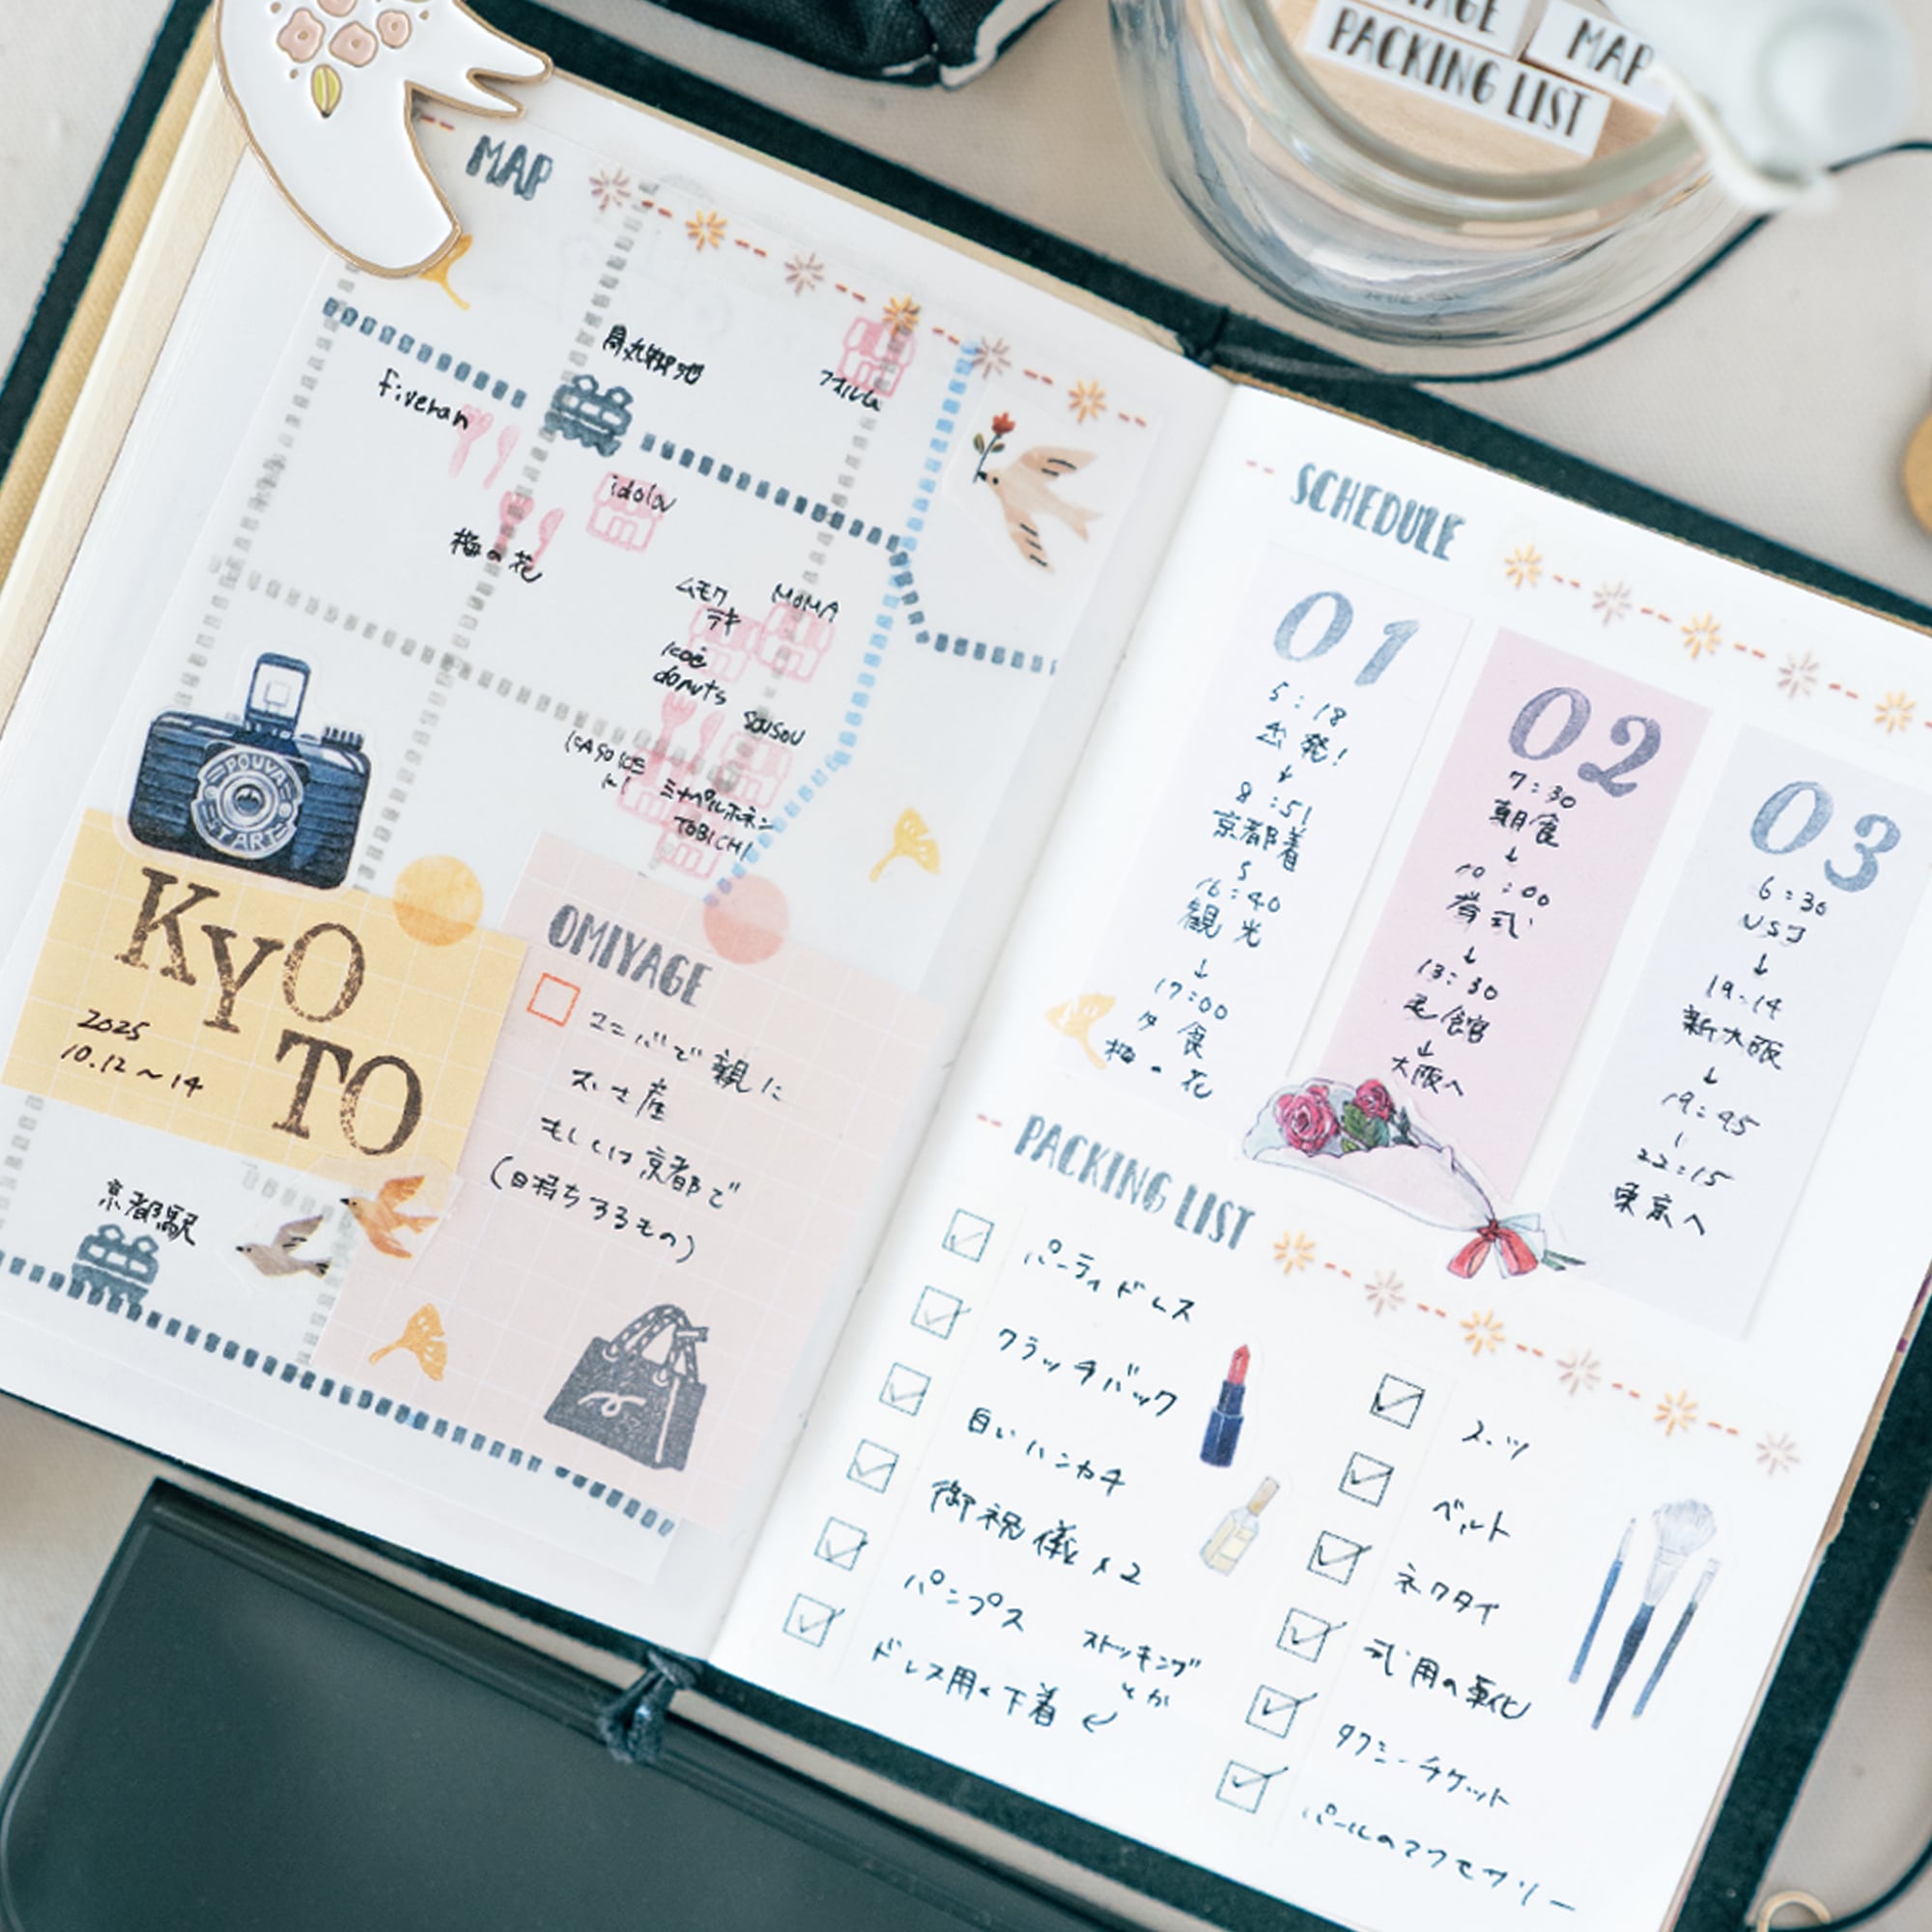 AGE
MAP
PACKING LIST
MAP
fiveran
フォルム
idola
梅の花
ムモク
テキ
MOMA
koé
donuts
SOUSOU
ミナペルホネン
TOBICHI
POUVA
START
KYO
TO
2025
10.12〜14
京都駅
OMIYAGE
ユニバで親に
お土産
もしくは京都で
(日持ちするもの)
SCHEDULE
01
5:18
出発!
↓
8:51
京都着
16:40
観光
↓
17:00
夕食
梅の花
02
7:30
朝食
↓
10:00
挙式
↓
13:30
↓
大阪へ
03
6:30
USJ
↓
19:14
新大阪
↓
19:45
22:15
東京へ
PACKING LIST
パーティドレス
クラッチバック
白いハンカチ
御祝儀×2
パンプス
ストッキング
とか
ドレス用の下着
スーツ
ベルト
ネクタイ
式用の靴
タクシーチケット
パールのアクセサリー